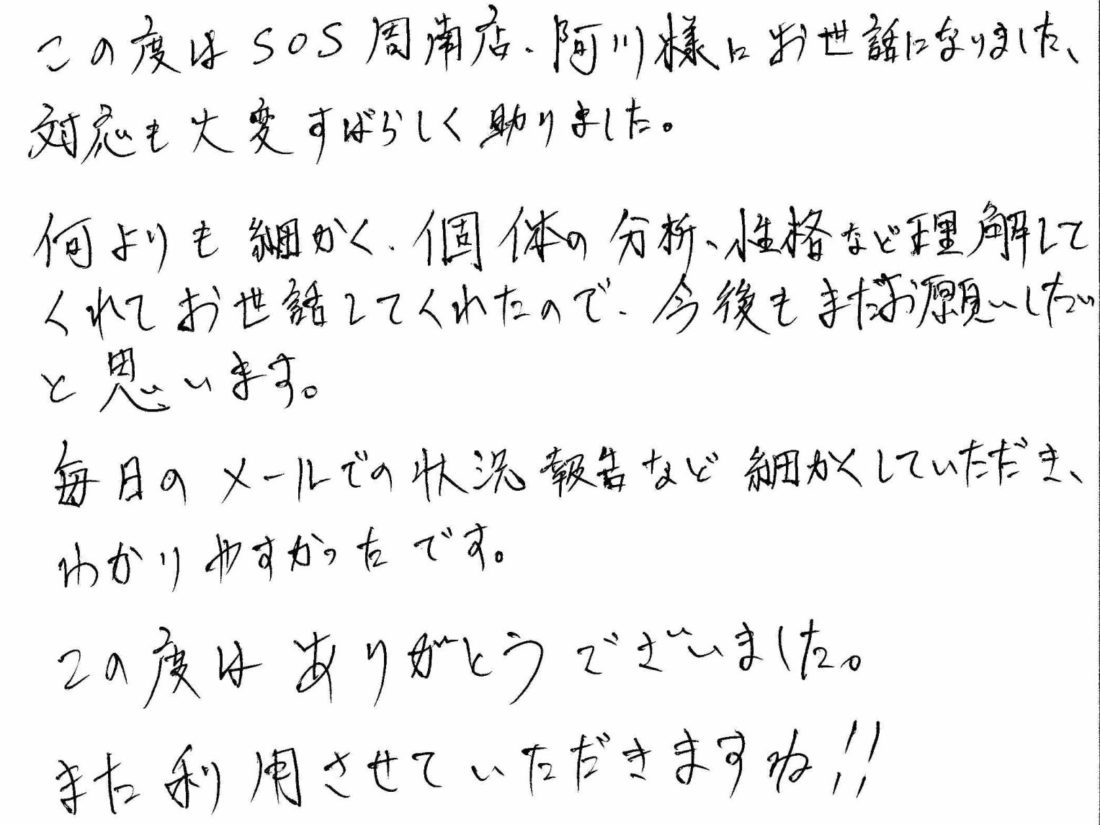 この度はSOS周南店、阿川様にお世話になりました、
対応も大変すばらしく助りました。
何よりも細かく、個体の分析、性格など理解して
くれてお世話してくれたので、今後もまたお願いしたい
と思います。
毎日のメールでの状況報告など細かくしていただき、
わかりやすかったです。
この度はありがとうございました。
また利用させていただきますね!!